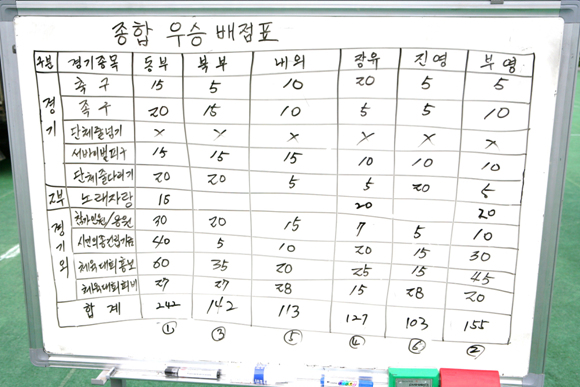 종합 우승 배점표
구분 경기종목 동부 북부 내외 장유 진영 부영
경기 축구 15 5 10 20 5 5
족구 20 15 10 5 5 10
단체줄넘기 × × × × × ×
서바이벌피구 15 15 15 10 10 10
단체줄다리기 20 20 5 5 20 5
2부 노래자랑 15 20 20
경기외 참가인원/응원 30 20 15 7 5 10
40 5 10 20 15 30
체육대회홍보 60 35 20 25 15 45
체육대회회비 27 27 28 15 28 20
합계 242 142 113 127 103 155
① ③ ⑤ ④ ⑥ ②